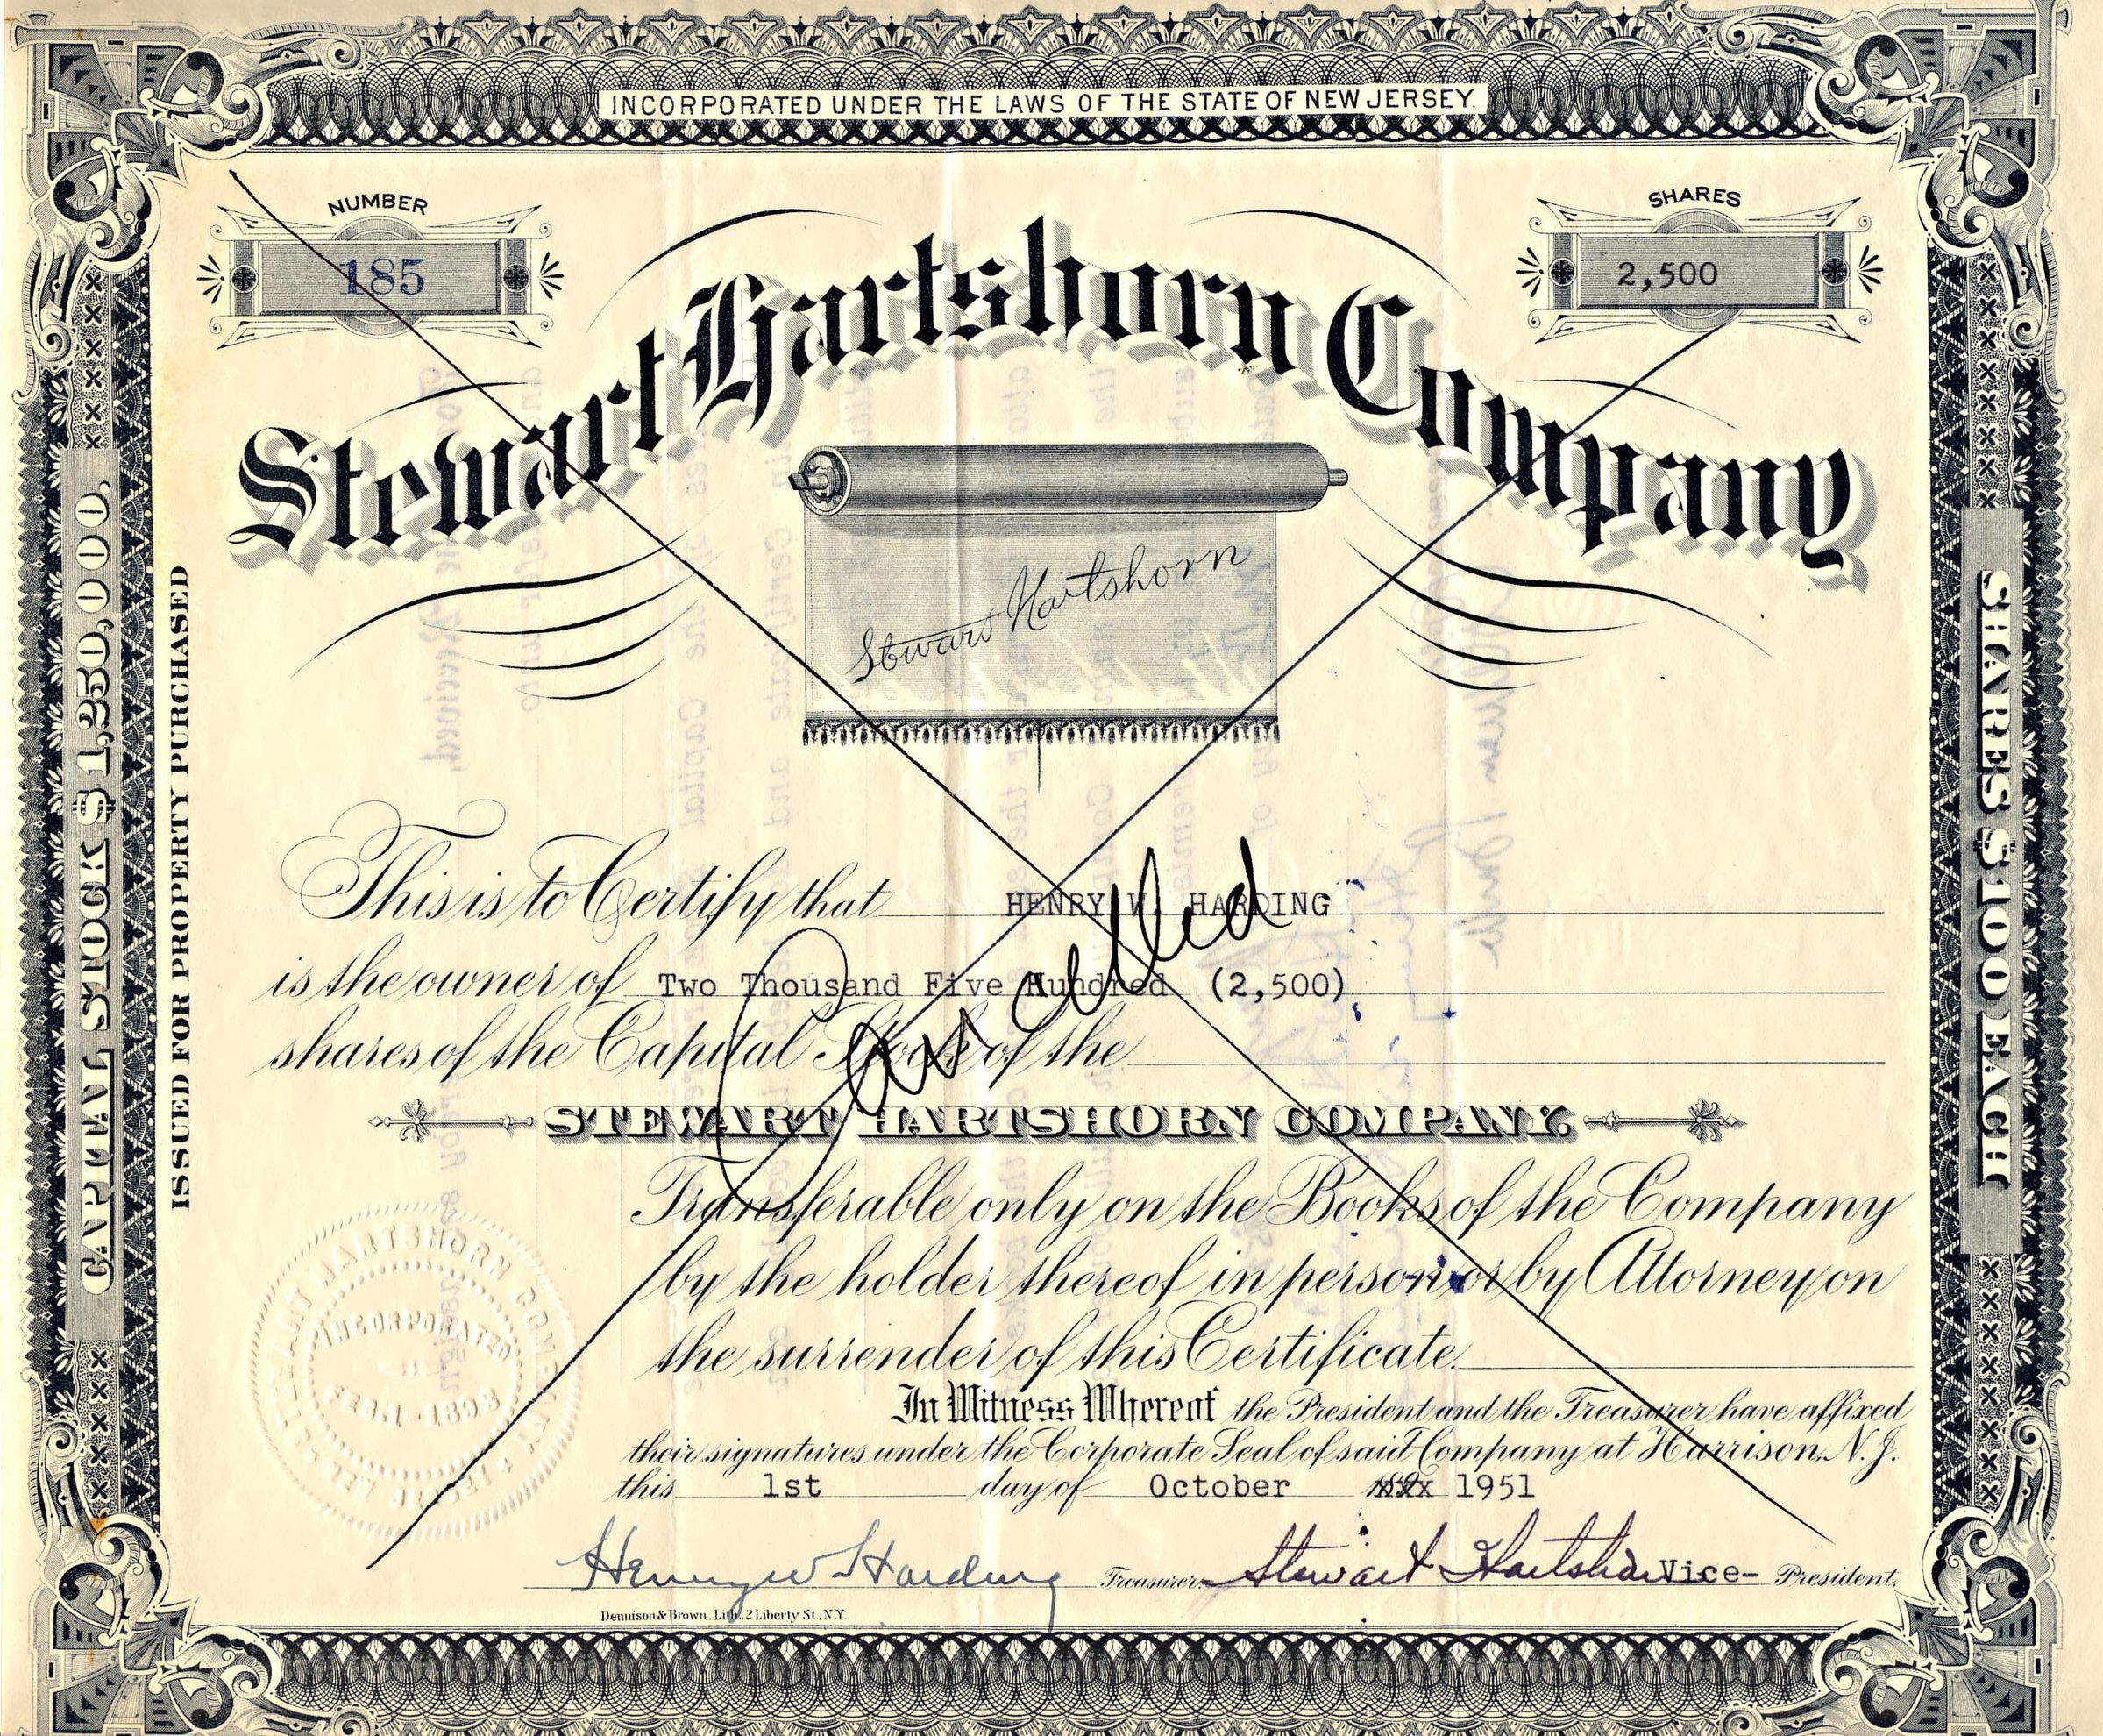 INCORPORATED UNDER THE LAWS OF THE STATE OF NEW JERSEY.
NUMBER
185
SHARES
2,500
Stewart Hartshorn Company
Stewart Hartshorn
CAPITAL STOCK $1,250,000.
ISSUED FOR PROPERTY PURCHASED
SHARES $100 EACH
This is to Certify that HENRY W. HARDING
is the owner of Two Thousand Five Hundred (2,500)
shares of the Capital Stock of the
Cancelled
STEWART HARTSHORN COMPANY.
Transferable only on the Books of the Company
by the holder thereof in person or by Attorney on
the surrender of this Certificate.
In Witness Whereof the President and the Treasurer have affixed
their signatures under the Corporate Seal of said Company at Harrison, N.J.
this 1st day of October 1951
Henry W Harding Treasurer. Stewart Hartshorn Vice- President.
Dennison & Brown, Lith., 2 Liberty St., N.Y.
STEWART HARTSHORN COMPANY
INCORPORATED